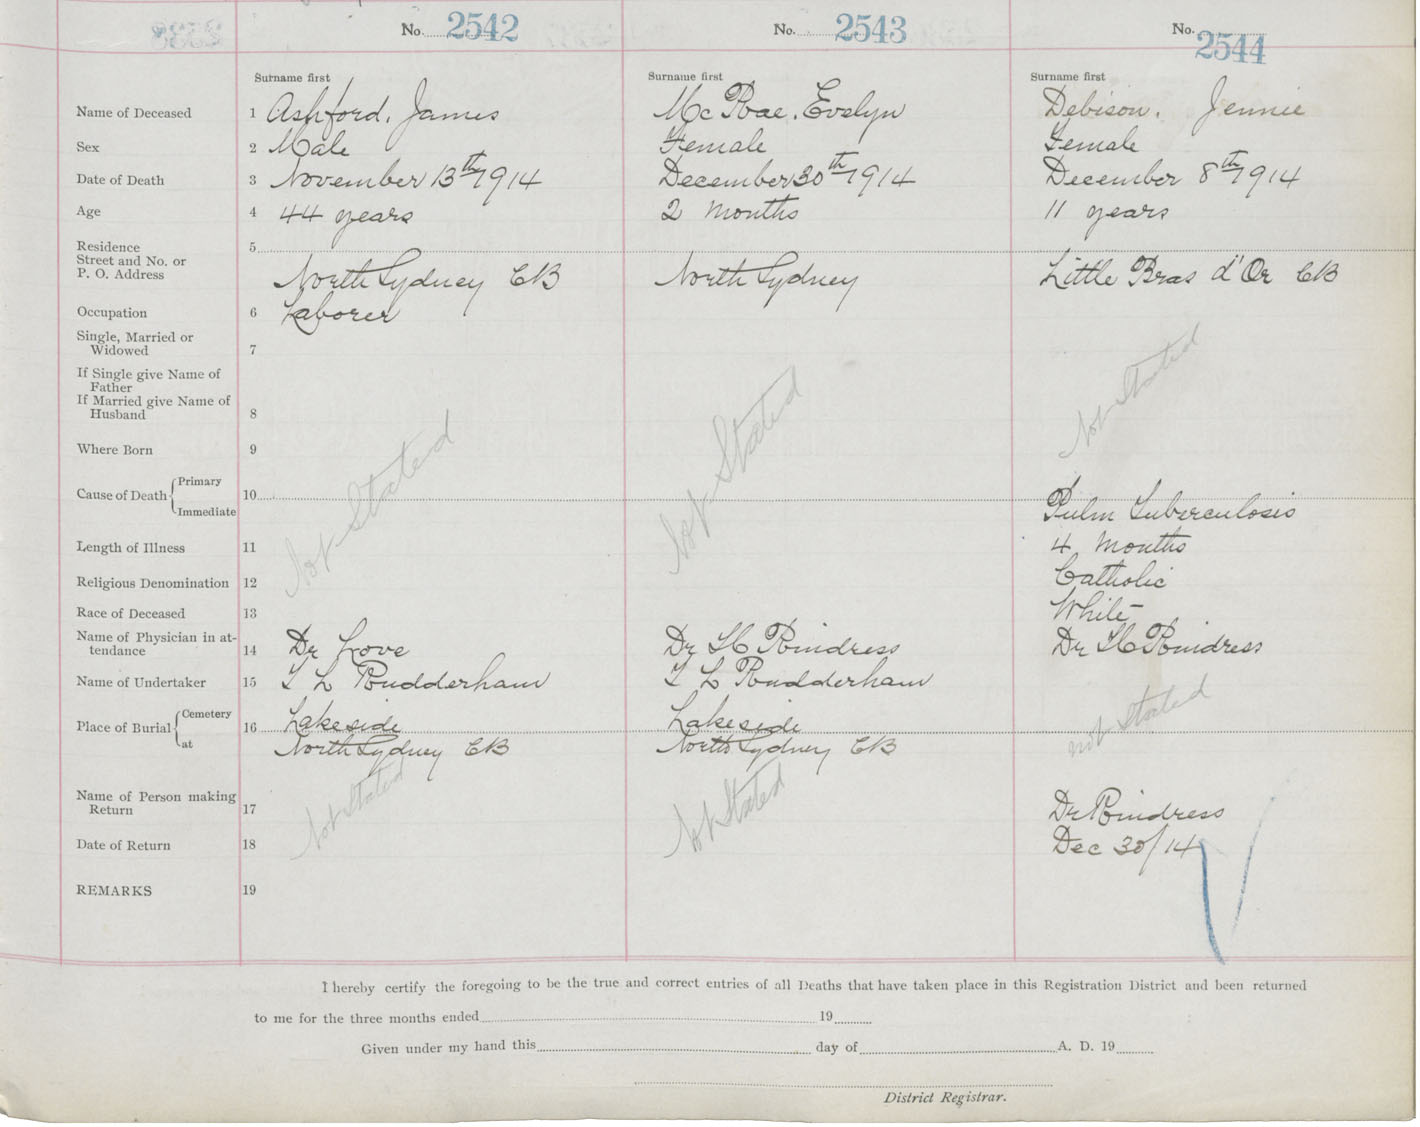 No. 2542 No. 2543 No. 2544
Surname first Surname first Surname first
Name of Deceased 1 Ashford, James McRae, Evelyn Debison, Jennie
Sex 2 Male Female Female
Date of Death 3 November 13th 1914 December 30th 1914 December 8th 1914
Age 4 44 years 2 months 11 years
Residence 5
Street and No. or
P. O. Address North Sydney CB North Sydney Little Bras d'Or CB
Occupation 6 Laborer
Single, Married or
Widowed 7
If Single give Name of
Father
If Married give Name of
Husband 8
Not Stated Not Stated Not Stated
Where Born 9
Cause of Death Primary
10
Immediate Pulm Tuberculosis
Length of Illness 11 4 months
Religious Denomination 12 Catholic
Race of Deceased 13 White
Name of Physician in at-
tendance 14 Dr Love Dr Rindress Dr Rindress
Name of Undertaker 15 T L Rudderham T L Rudderham
Place of Burial Cemetery 16 Lakeside Lakeside not Stated
at North Sydney CB North Sydney CB
Name of Person making
Return 17 Not Stated Not Stated Dr Rindress
Date of Return 18 Dec 30/14
REMARKS 19
I hereby certify the foregoing to be the true and correct entries of all Deaths that have taken place in this Registration District and been returned
to me for the three months ended 19
Given under my hand this day of A. D. 19
District Registrar.